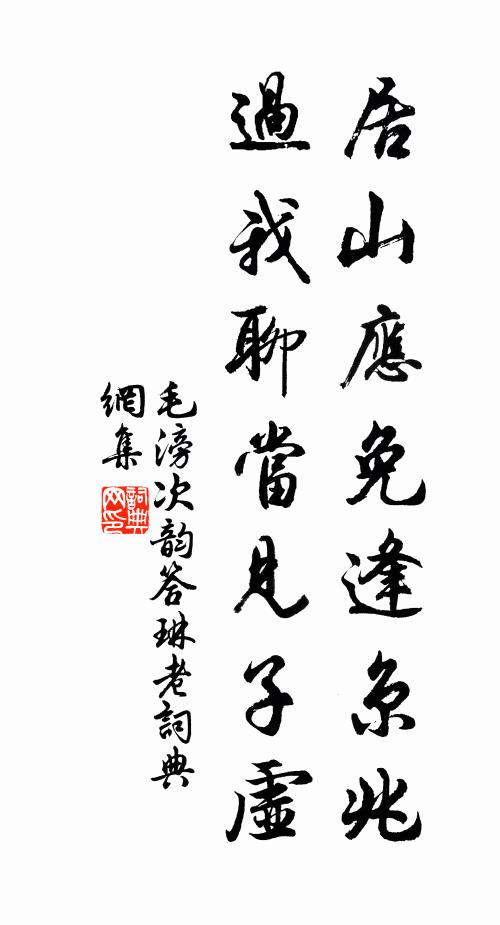 居山應免逢京兆
過我聊當見子虛
毛滂次韵答琳老詞典
網集
詞典网印